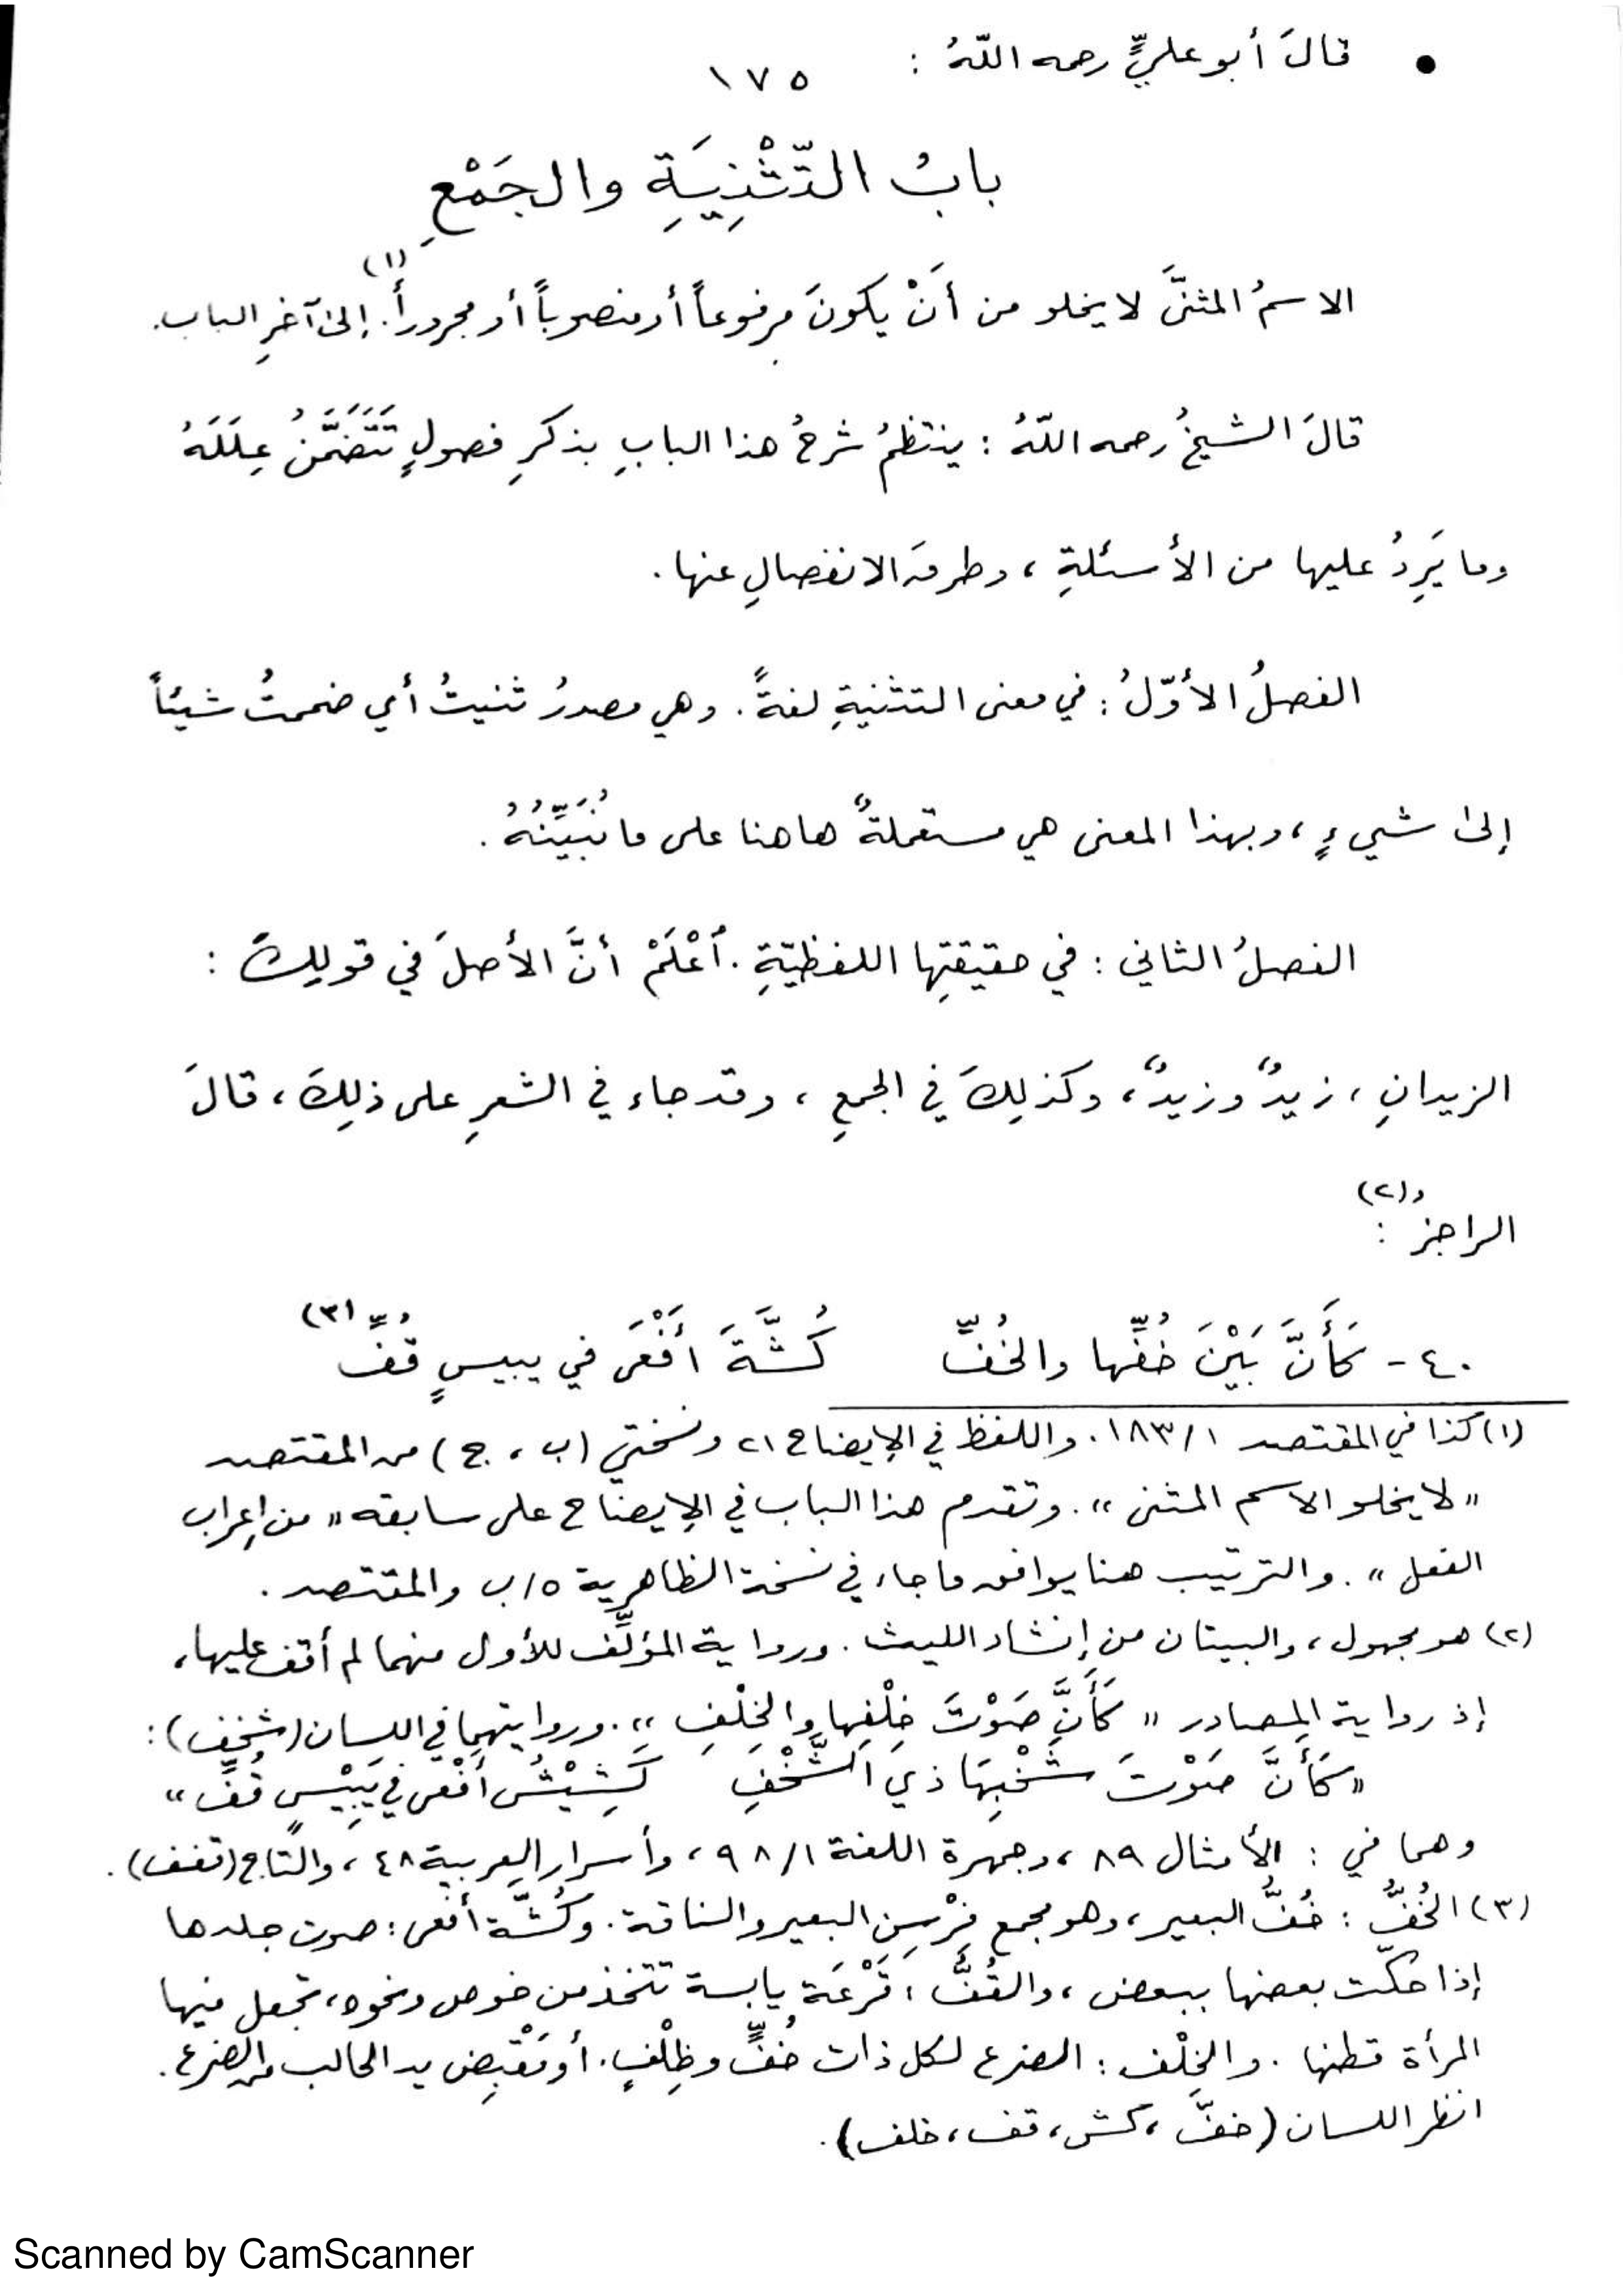 • قالَ أبو عليٍّ رحمه اللّهُ :
١٧٥
بابُ التّثْنِيَةِ والجَمْعِ
الاسمُ المثنَّى لا يخلو من أَنْ يكونَ مرفوعاً أو منصوباً أو مجروراً.(١) إلى آخرِ الباب.
قالَ الشيخُ رحمه اللّهُ : ينتظمُ شرحُ هذا البابِ بذكرِ فصولٍ تَتَضَمَّنُ عِلَلَهُ
وما يَرِدُ عليها من الأسئلةِ ، وطرقَ الانفصالِ عنها .
الفصلُ الأوّلُ : في معنى التثنيةِ لغةً . وهي مصدرُ ثنيتُ أي ضممتُ شيئاً
إلى شيءٍ ، وبهذا المعنى هي مستعملةٌ هاهنا على ما نُبَيِّنُهُ .
الفصلُ الثاني : في حقيقتِها اللفظيّةِ . اُعْلَمْ أنَّ الأصلَ في قولِكَ :
الزيدانِ ، زيدٌ وزيدٌ ، وكذلِكَ في الجمعِ ، وقد جاء في الشعرِ على ذلِكَ ، قالَ
الراجزُ(٢) :
٤٠ - كَأَنَّ بَيْنَ خُفِّها والخُفِّ كُشَّةَ أَفْعَى في يبيسٍ قُفِّ(٣)
(١) كذا في المقتصد ١/١٨٣. واللفظ في الإيضاح ٢١ ونسختي (ب ، ج) من المقتصد
« لا يخلو الاسم المثنى » . وتقدم هذا الباب في الإيضاح على سابقه « من إعراب
الفعل » . والترتيب هنا يوافق ما جاء في نسخة الظاهرية ٥/ب والمقتصد .
(٢) هو مجهول ، والبيتان من إنشاد الليث . ورواية المؤلِّف للأول منهما لم أقف عليها ،
إذ رواية المصادر « كَأَنَّ صَوْتَ خِلْفِها والخِلْفِ » . وروايتهما في اللسان (شخف) :
« كَأَنَّ صَوْتَ شَخْبِهَا ذي الشَّخْفِ كَشِيْشُ أَفْعى في يَبِيْسٍ قُفِّ »
وهما في : الأمثال ٨٩ ، وجمهرة اللغة ١/ ٩٨ ، وأسرار العربية ٤٨ ، والتاج (قفف) .
(٣) الخُفُّ : خُفُّ البعير ، وهو مجمع فِرْسِن البعير والناقة . وكُشّة أفعى : صوت جلدها
إذا حكّت بعضها ببعض ، والقُفُّ : قَرْعَة يابسة تتخذ من خوص ونحوه ، تجعل فيها
المرأة قطنها . والخِلْف : الضرع لكل ذات خُفٍّ وظِلْفٍ . أو مَقْبِض يد الحالب من الضرع .
انظر اللسان (خفّ ، كش ، قف ، خلف) .
Scanned by CamScanner